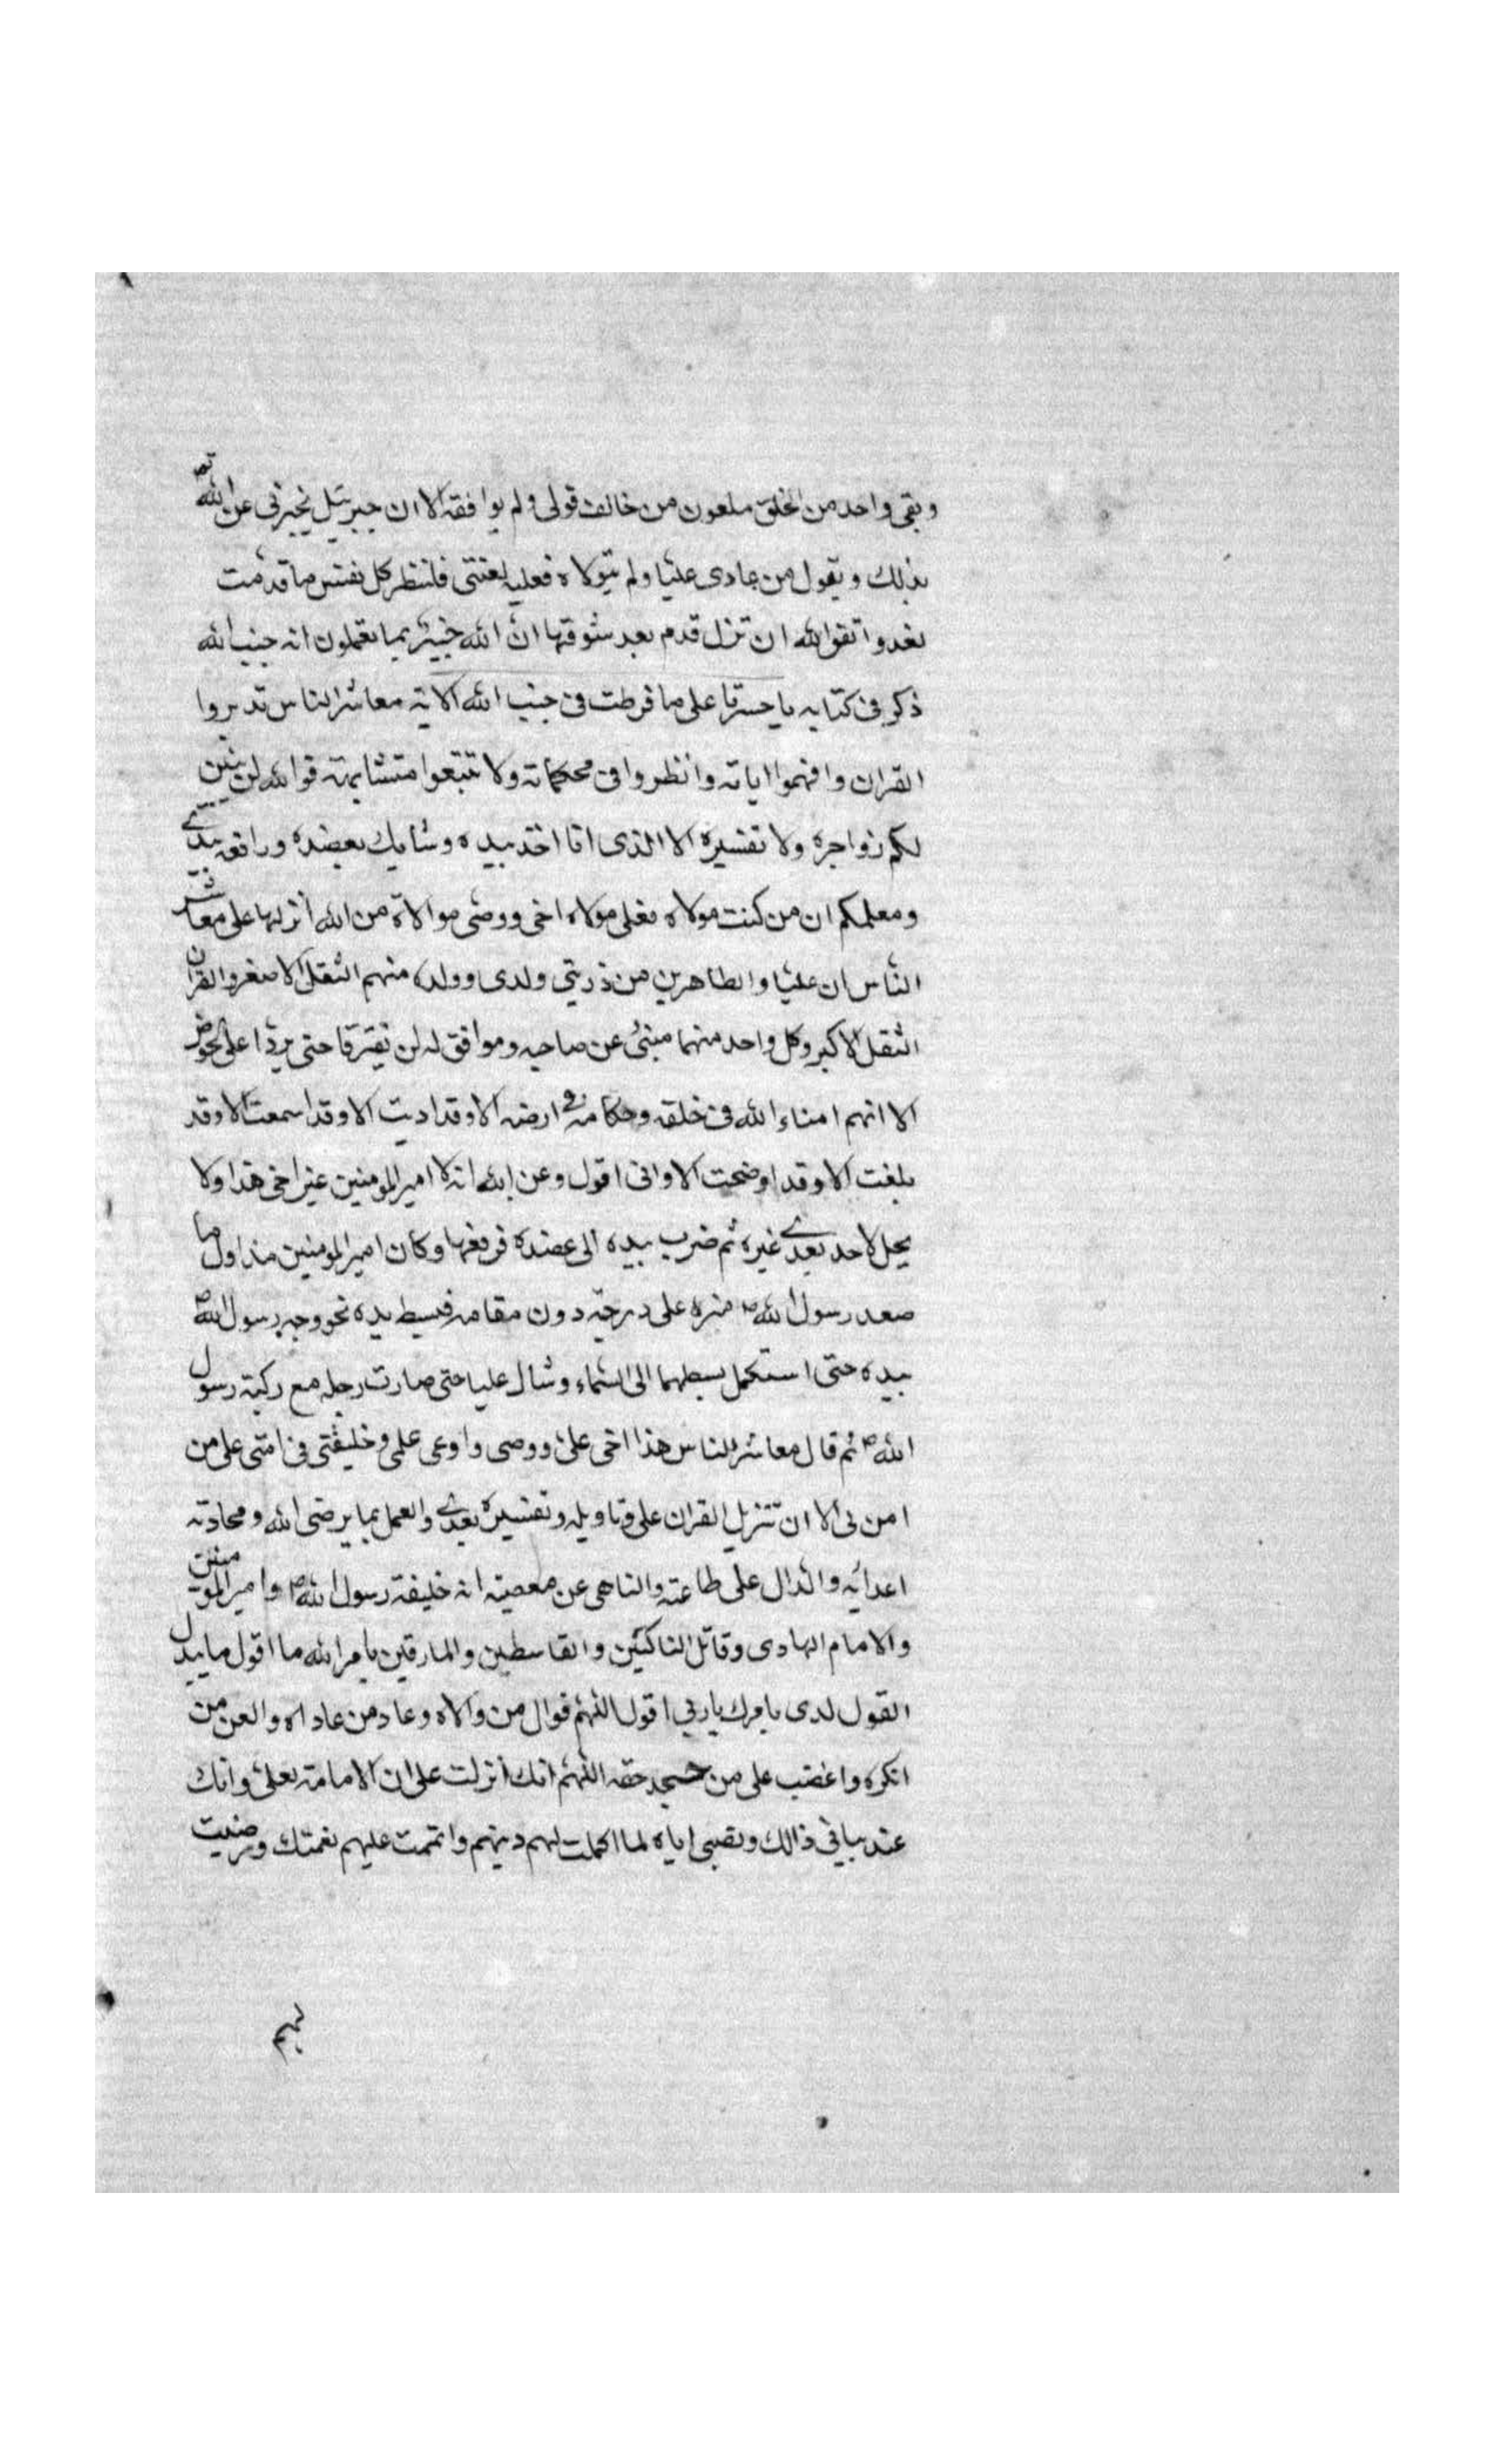 وبقى واحد من الخلق ملعون من خالف قولى ولم يوافقه الا ان جبرئيل يخبرنى عن الله تع
بذلك ويقول من عادى عليّا ولم يتولاه فعليه لعنتى فلتنظر كل نفس ما قدّمت
لغد واتقوالله ان تزل قدم بعد ثبوتها انّ الله خبير بما تعملون انه جنب الله
ذكر فى كتابه يا حسرتا على ما فرطت فى جنب الله الاية معاشر الناس تدبروا
القران وافهموا اياته وانظروا فى محكماته ولا تتبعوا متشابهه فوالله لن يبين
لكم زواجره ولا تفسيره الا الذى انا اخذ بيده وشايك بعضده ورافعه بيدى
ومعلمكم ان من كنت مولاه فعلى مولاه اخى ووصى موالاته من الله انزلها على معاشر
النّاس ان عليّا والطاهرين من ذريتى ولدى وولده منهم الثقل الاصغر والقران
الثقل الاكبر وكل واحد منهما منبئ عن صاحبه وموافق له لن يفترقا حتى يردا على الحوض
الا انهم امناء الله فى خلقه وحكامه فى ارضه الا وقد اديت الا وقد اسمعت الا وقد
بلغت الا وقد اوضحت الا وانى اقول وعن الله انه لا امير المومنين غير اخى هذا ولا
يحل لاحد بعدى غيره ثم ضرب بيده الى عضده فرفعها وكان امير المومنين منذ اول ما
صعد رسول الله ص منبره على درجة دون مقامه فبسط يده نحو وجه رسول الله ص
بيده حتى استكمل بسطهما الى السّماء وشال عليا حتى صارت رجله مع ركبة رسول
الله ص ثم قال معاشر الناس هذا اخى علىّ ووصى واوعى علمى وخليفتى فى امتى على من
امن بى الا ان تنزيل القران على وتاويله وتفسيره بعدى والعمل بما يرضى الله ومحادته
اعدائه والدّال على طاعته والناهى عن معصيته انه خليفة رسول الله ص وامير المومنين
والامام الهادى وقاتل الناكثين والقاسطين والمارقين بامر الله ما اقول ما يبدل
القول لدى بامرك يا ربى اقول اللّهمّ فوال من والاه وعاد من عاداه والعن من
انكره واغضب على من جحد حقه اللّهمّ انك انزلت على ان الامامة لعلىّ وانك
عند بيانى ذالك ونصبى اياه لما اكملت لهم دينهم واتممت عليهم نعمتك ورضيت
لهم